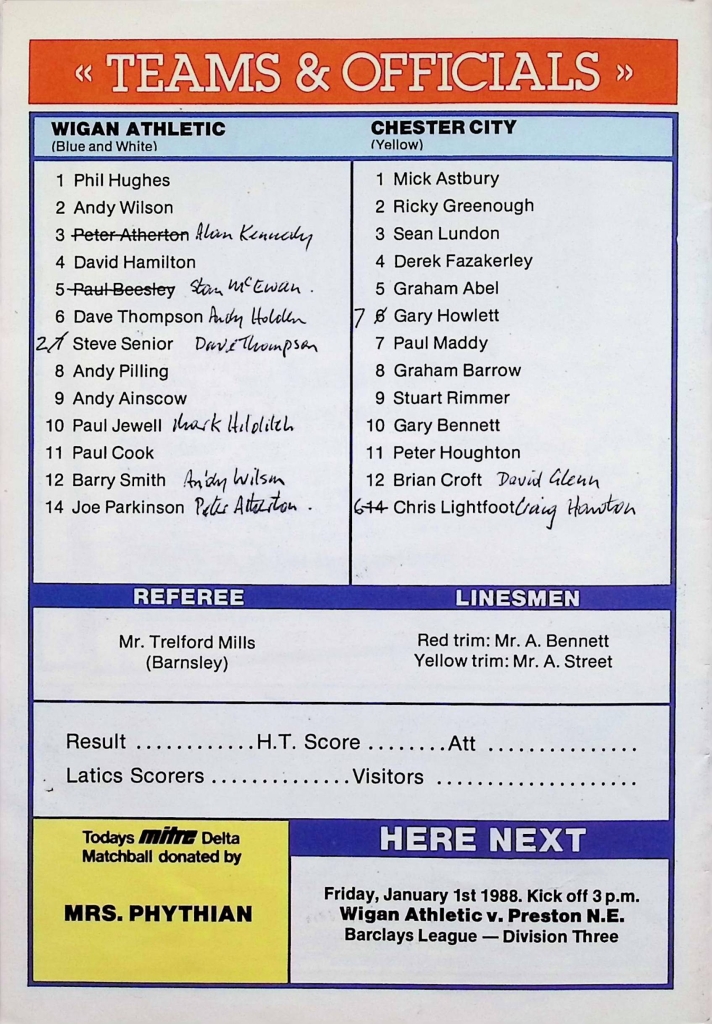 « TEAMS & OFFICIALS »
WIGAN ATHLETIC
(Blue and White)
1 Phil Hughes
2 Andy Wilson
3 Peter Atherton Alan Kennedy
4 David Hamilton
5 Paul Beesley Stan McEwan.
6 Dave Thompson Andy Holden
2 7 Steve Senior Dave Thompson
8 Andy Pilling
9 Andy Ainscow
10 Paul Jewell Mark Hilditch
11 Paul Cook
12 Barry Smith Andy Wilson
14 Joe Parkinson Peter Atherton.
CHESTER CITY
(Yellow)
1 Mick Astbury
2 Ricky Greenough
3 Sean Lundon
4 Derek Fazakerley
5 Graham Abel
7 6 Gary Howlett
7 Paul Maddy
8 Graham Barrow
9 Stuart Rimmer
10 Gary Bennett
11 Peter Houghton
12 Brian Croft David Glenn
6 14 Chris Lightfoot Craig
REFEREE
Mr. Trelford Mills
(Barnsley)
LINESMEN
Red trim: Mr. A. Bennett
Yellow trim: Mr. A. Street
Result ............H.T. Score ........Att ...............
Latics Scorers ..............Visitors ....................
Todays mitre Delta
Matchball donated by
MRS. PHYTHIAN
HERE NEXT
Friday, January 1st 1988. Kick off 3 p.m.
Wigan Athletic v. Preston N.E.
Barclays League — Division Three